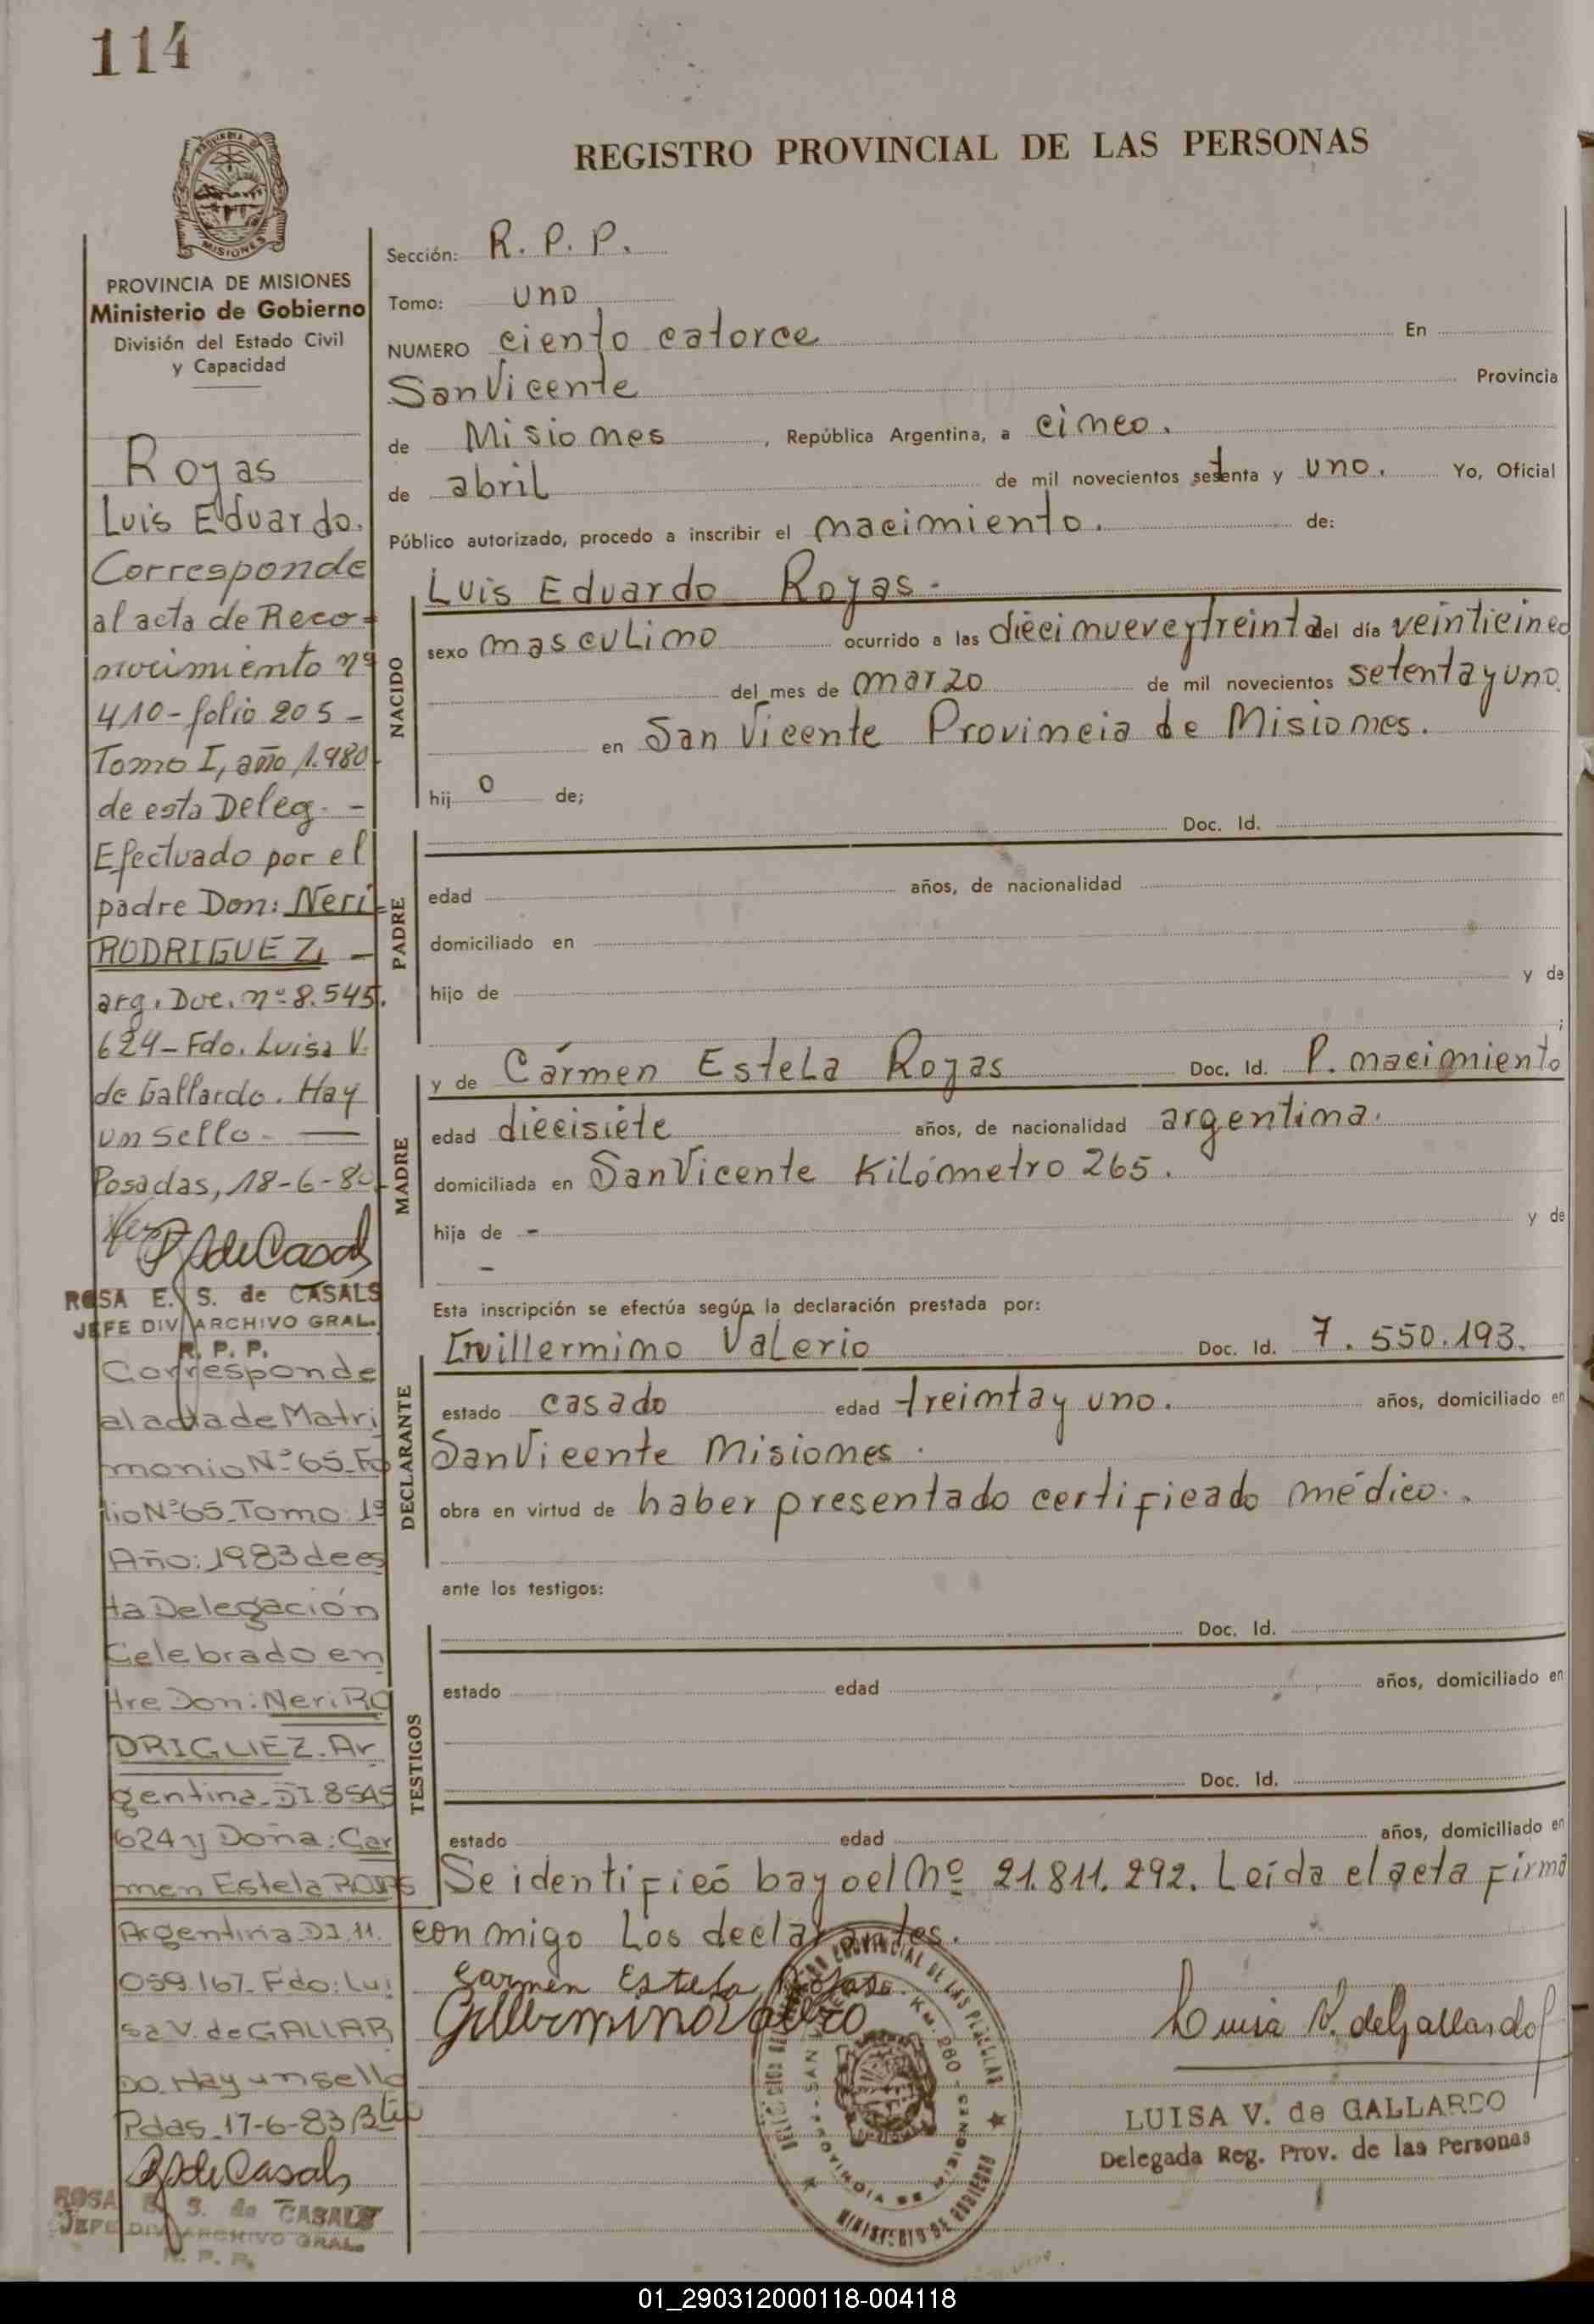 114
REGISTRO PROVINCIAL DE LAS PERSONAS
MISIONES
PROVINCIA DE MISIONES
Ministerio de Gobierno
División del Estado Civil
y Capacidad
Rojas
Luis Eduardo.
Corresponde
al acta de Reco=
nocimiento nº
410-folio 205-
Tomo I, año 1.980
de esta Deleg. -
Efectuado por el
padre Don: Neri=
RODRIGUEZ, -
arg. Doc. nº 8.545.
624-Fdo. Luisa V.
de Gallardo. Hay
un sello. —
Posadas, 18-6-80
RSdeCasals
ROSA E. S. de CASALS
JEFE DIV. ARCHIVO GRAL.
R. P. P.
Corresponde
al acta de Matri
monio Nº 65_Fo
lio Nº 65_Tomo: 1º
Año: 1983 de es
ta Delegación
Celebrado en
tre Don: Neri RO
DRIGUEZ. Ar
gentina_DI. 8545
624 y Doña: Car
men Estela ROJAS
Argentina DI. 11.
059.167_Fdo: Lui
sa V. de GALLAR
DO. Hay un sello
Pdas_17-6-83
RSdeCasals
ROSA E. S. de CASALS
JEFE DIV. ARCHIVO GRAL.
R. P. P.
Sección: R. P. P.
Tomo: uno
NUMERO ciento catorce En
San Vicente Provincia
de Misiones , República Argentina, a cinco.
de abril de mil novecientos setenta y uno. Yo, Oficial
Público autorizado, procedo a inscribir el nacimiento. de:
NACIDO
Luis Eduardo Rojas.
sexo masculino ocurrido a las diecinueve y treinta del día veinticinco
del mes de marzo de mil novecientos setenta y uno
en San Vicente Provincia de Misiones.
hij o de;
PADRE
Doc. Id.
edad años, de nacionalidad
domiciliado en
hijo de y de
;
MADRE
y de Cármen Estela Rojas Doc. Id. P. nacimiento
edad diecisiete años, de nacionalidad argentina.
domiciliada en San Vicente Kilómetro 265.
hija de - y de
-
Esta inscripción se efectúa según la declaración prestada por:
DECLARANTE
Guillermino Valerio Doc. Id. 7.550.193.
estado casado edad treinta y uno. años, domiciliado en
San Vicente Misiones.
obra en virtud de haber presentado certificado médico.
ante los testigos:
TESTIGOS
Doc. Id.
estado edad años, domiciliado en
Doc. Id.
estado edad años, domiciliado en
Se identificó bajo el Nº 21.811.292. Leída el acta firma
con migo los declarantes.
Carmen Estela Rojas
Gillermino Valerio
Luisa V. de Gallardo
LUISA V. de GALLARDO
Delegada Reg. Prov. de las Personas
PROVINCIAL DE LAS PERSONAS
SAN KM. 260
PROVINCIA DE MISIONES
MINISTERIO DE GOBIERNO
01_290312000118-004118